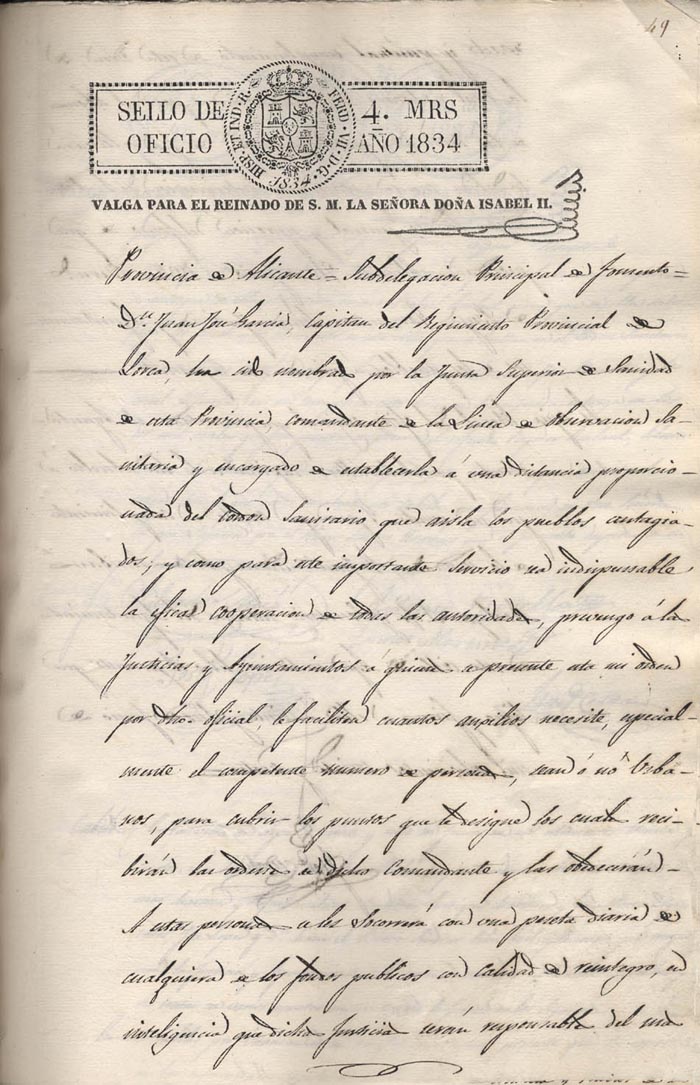 49
SELLO DE OFICIO
HISP. ET IND. R. FERD. VII. D. G. 1834
4. MRS AÑO 1834
VALGA PARA EL REINADO DE S. M. LA SEÑORA DOÑA ISABEL II.
Provincia de Alicante = Subdelegacion Principal de Fomento =
Dn. Juan José Garcia, Capitan del Regimiento Provincial de
Lorca, ha sido nombrado por la Junta Superior de Sanidad
de esta Provincia, comandante de la Linea de Observacion Sa-
nitaria y encargado de establecerla á una distancia proporcio-
nada del cordon Sanitario que aisla los pueblos contagia-
dos; y como para este importante Servicio sea indispensable
la eficaz cooperacion de todas las autoridades, prevengo á las
Justicias y Ayuntamientos á quienes se presente esta mi orden
por dho. oficial, le faciliten cuantos auxilios necesite, especial-
mente el competente numero de personas, sean ó no Urba-
nos, para cubrir los puntos que les designe los cuales reci-
birán las ordenes de dicho Comandante y las obedecerán =
A estas personas se les Socorrerá con una peseta diaria de
cualquiera de los fondos publicos con calidad de reintegro, en
inteligencia que dichas Justicias serán responsables del mas